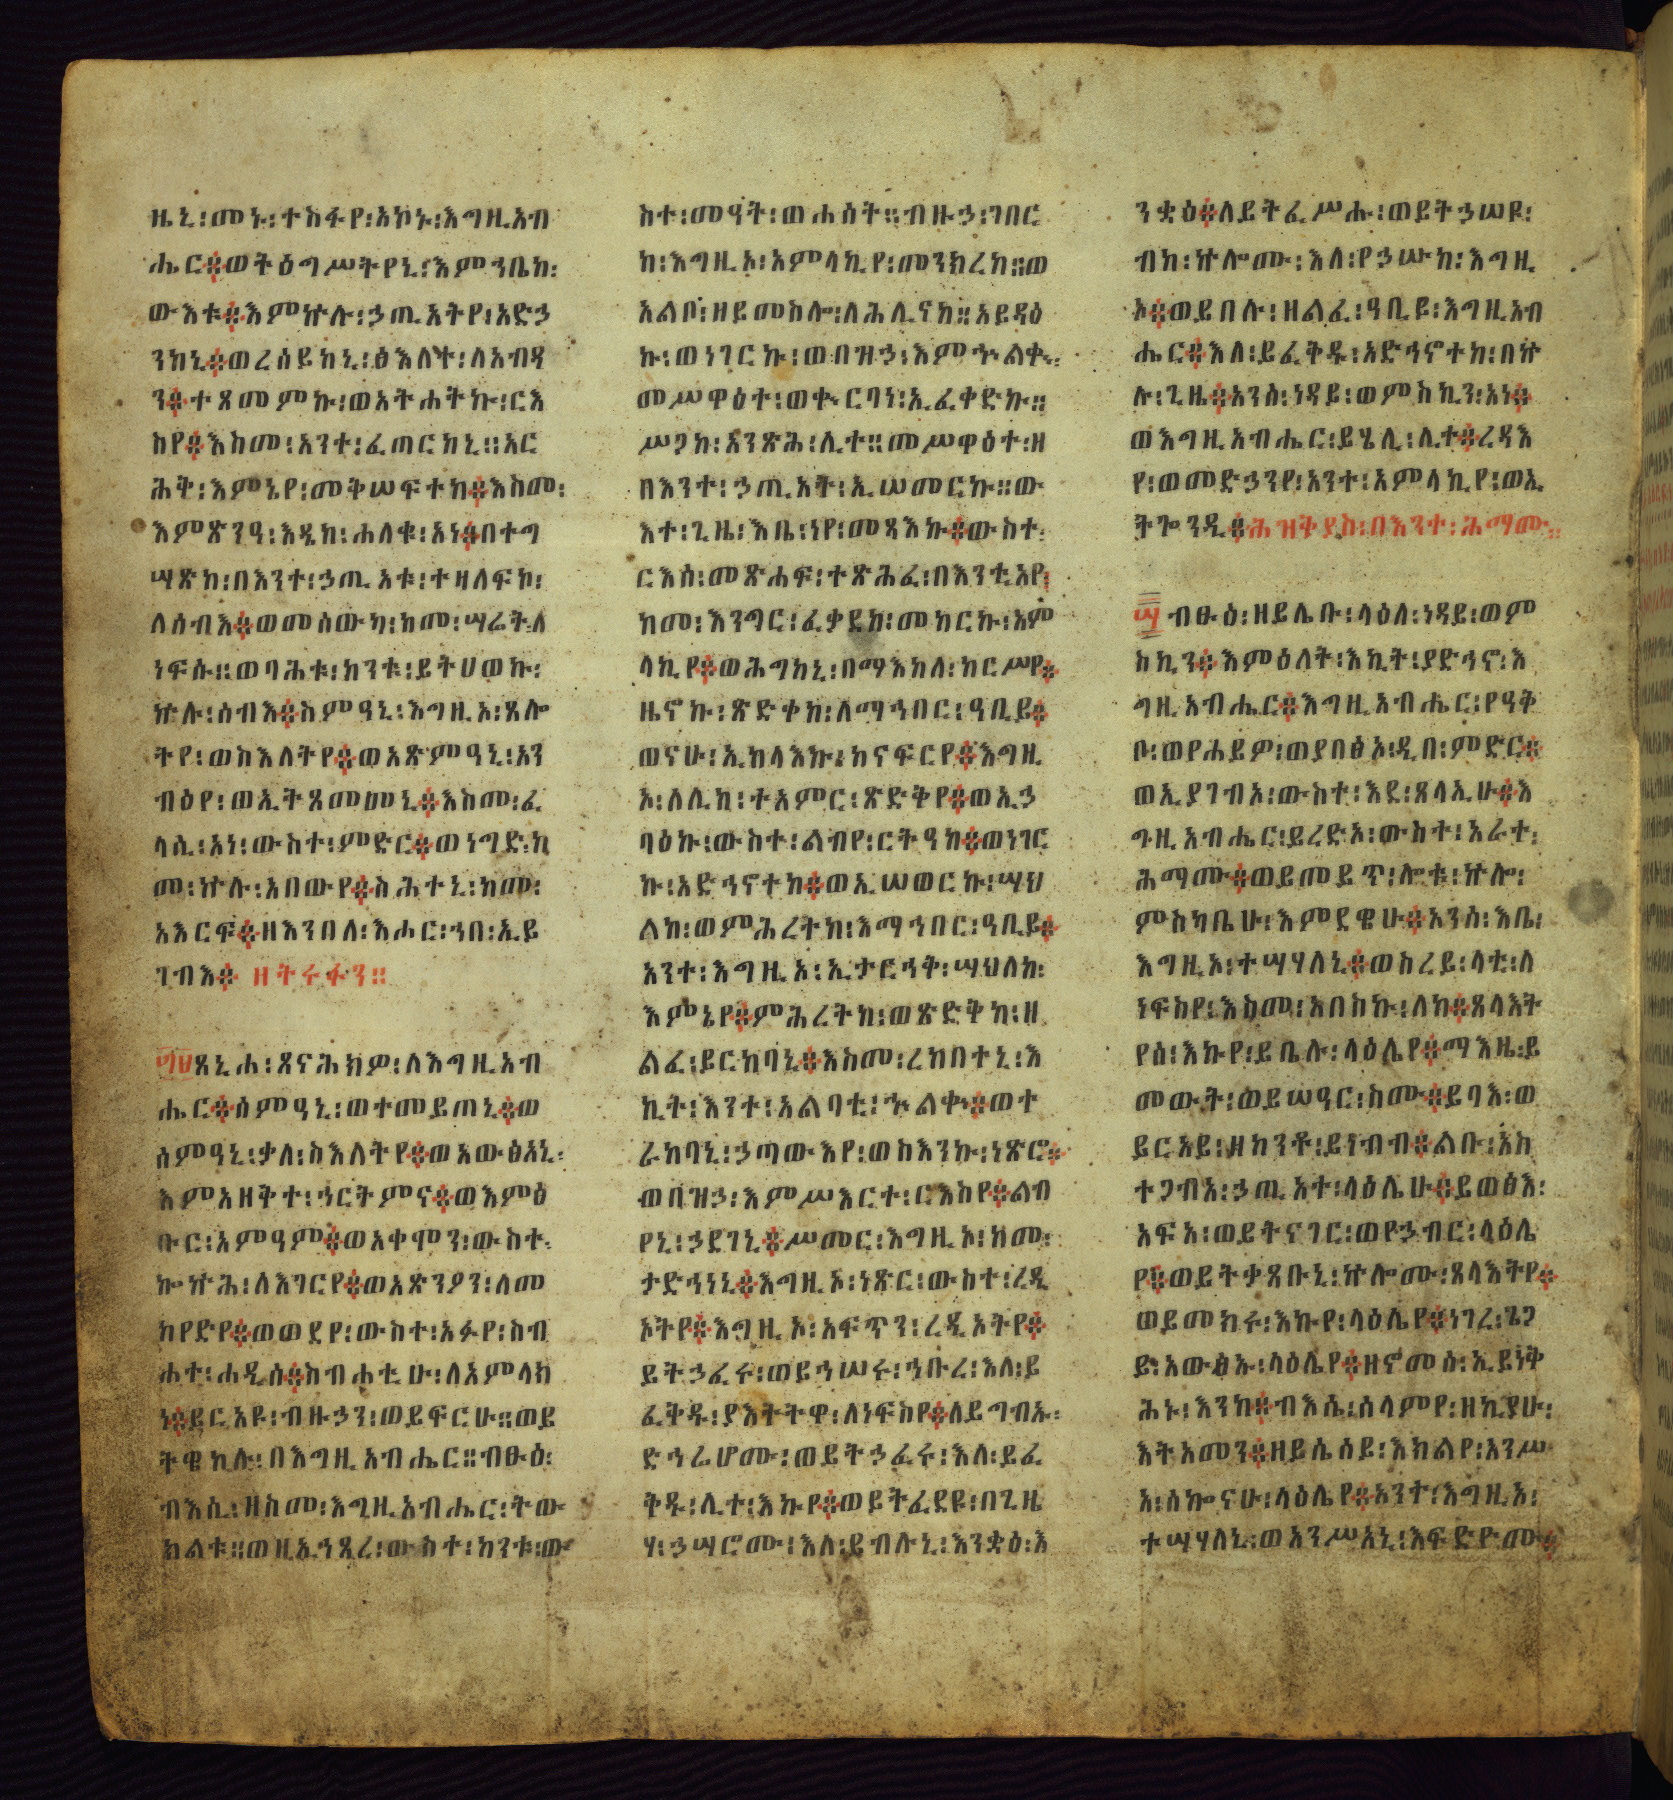 ዜኒ፡መኑ፡ተስፋየ፡አኮኑ፡እግዚአብ
ሔር፨ወትዕግሥትየኒ፡እምኀቤከ፡
ውእቱ፨እምኵሉ፡ኃጢአትየ፡አድኃ
ንከኒ፨ወረሰይከኒ፡ፅእለት፡ለአብዳ
ን፨ተጸመምኩ፡ወአትሐትኩ፡ርእ
ስየ፨እስመ፡አንተ፡ፈጠርከኒ።አር
ሕቅ፡እምኔየ፡መቅሠፍተከ፨እስመ፡
እምጽንዓ፡እዴከ፡ሐለቁ፡አነ፨በተግ
ሣጽከ፡በእንተ፡ኃጢአቱ፡ተዛለፍኮ፡
ለሰብእ፨ወመሰውካ፡ከመ፡ሣሬት፡ለ
ነፍሱ።ወባሕቱ፡ከንቱ፡ይትሀወኩ፡
ኵሉ፡ሰብእ፨ስምዓኒ፡እግዚአ፡ጸሎ
ትየ፡ወስእለትየ፨ወአጽምዓኒ፡አን
ብዕየ፡ወኢትጸመመኒ፨እስመ፡ፈ
ላሲ፡አነ፡ውስተ፡ምድር፨ወነግድ፡ከ
መ፡ኵሉ፡አበውየ፨ስሕተኒ፡ከመ፡
አእርፍ፨ዘእንበለ፡እሖር፡ኀበ፡ኢይ
ገብእ፨ዘትሩፋን።
፴፱ጸኒሐ፡ጸናሕክዎ፡ለእግዚአብ
ሔር፨ሰምዓኒ፡ወተመይጠኒ፨ወ
ሰምዓኒ፡ቃለ፡ስእለትየ፨ወአውፅአኒ፡
እምአዘቅተ፡ኀርትምና፨ወእምፅ
ቡር፡አምዓም፨ወአቀሞን፡ውስተ፡
ኰኵሕ፡ለእገርየ፨ወአጽንዖን፡ለመ
ከየድየ፨ወወደየ፡ውስተ፡አፉየ፡ስብ
ሐተ፡ሐዲሰ፨ስብሐቲሁ፡ለአምላክ
ነ፨ይርአዩ፡ብዙኃን፡ወይፍርሁ።ወይ
ትዌከሉ፡በእግዚአብሔር።ብፁዕ፡
ብእሲ፡ዘስመ፡እግዚአብሔር፡ትው
ክልቱ።ወዘኢኀጸረ፡ውስተ፡ከንቱ፡ው
ስተ፡መዓት፡ወሐሰት።ብዙኃ፡ገበር
ከ፡እግዚኦ፡አምላኪየ፡መንክረከ።ወ
አልቦ፡ዘይመስሎ፡ለሕሊናከ።አይዳዕ
ኩ፡ወነገርኩ፡ወበዝኃ፡እምኍልቍ፡
መሥዋዕተ፡ወቍርባነ፡ኢፈቀድኩ።
ሥጋከ፡አንጽሕ፡ሊተ።መሥዋዕተ፡ዘ
በእንተ፡ኃጢአት፡ኢሠመርኩ።ው
እተ፡ጊዜ፡እቤ፡ነየ፡መጻእኩ፨ውስተ፡
ርእሰ፡መጽሐፍ፡ተጽሕፈ፡በእንቲአየ፡
ከመ፡እንግር፡ፈቃደከ፡መከርኩ፡አም
ላኪየ፨ወሕግከኒ፡በማእከለ፡ከርሥየ፨
ዜኖኩ፡ጽድቀከ፡ለማኅበር፡ዓቢይ፨
ወናሁ፡ኢከላእኩ፡ከናፍርየ፨እግዚ
ኦ፡ለሊከ፡ተአምር፡ጽድቅየ፨ወኢኃ
ባዕኩ፡ውስተ፡ልብየ፡ርትዓከ፨ወነገር
ኩ፡አድኅኖተከ፨ወኢሠወርኩ፡ሣህ
ልከ፡ወምሕረትከ፡እማኅበር፡ዓቢይ፨
አንተ፡እግዚአ፡ኢታርኅቅ፡ሣህለከ፡
እምኔየ፨ምሕረትከ፡ወጽድቅከ፡ዘ
ልፈ፡ይርከባኒ፨እስመ፡ረከበተኒ፡እ
ኪት፡እንተ፡አልባቲ፡ኍልቍ፨ወተ
ራከባኒ፡ኃጣውእየ፡ወስእንኩ፡ነጽሮ፨
ወበዝኃ፡እምሥእርተ፡ርእስየ፨ልብ
የኒ፡ኃደገኒ፨ሥመር፡እግዚኦ፡ከመ፡
ታድኅነኒ፨እግዚኦ፡ነጽር፡ውስተ፡ረዲ
ኦትየ፨እግዚኦ፡አፍጥን፡ረዲኦትየ፨
ይትኃፈሩ፡ወይኀሠሩ፡ኅቡረ፡እለ፡ይ
ፈቅዱ፡ያእትትዋ፡ለነፍስየ፨ለይግብኡ፡
ድኅሬሆሙ፡ወይትኃፈሩ፡እለ፡ይፈ
ቅዱ፡ሊተ፡እኩየ፨ወይትፈደዩ፡በጊዜ
ሃ፡ኃሣሮሙ፡እለ፡ይብሉኒ፡እንቋዕ፡እ
ንቋዕ፨ለይትፈሥሑ፡ወይትኃሠዩ፡
ብከ፡ኵሎሙ፡እለ፡የኃሡከ፡እግዚ
ኦ፨ወይበሉ፡ዘልፈ፡ዓቢይ፡እግዚአብ
ሔር፨እለ፡ይፈቅዱ፡አድኅኖተከ፡በኵ
ሉ፡ጊዜ፨አንሰ፡ነዳይ፡ወምስኪን፡አነ፨
ወእግዚአብሔር፡ይሄሊ፡ሊተ፨ረዳእ
የ፡ወመድኃንየ፡አንተ፡አምላኪየ፡ወኢ
ትጐንዲ፨ሕዝቅያስ፡በእንተ፡ሕማሙ።
፵ብፁዕ፡ዘይሌቡ፡ላዕለ፡ነዳይ፡ወም
ስኪን፨እምዕለት፡እኪት፡ያድኅኖ፡እ
ግዚአብሔር፨እግዚአብሔር፡የዓቅ
ቦ፡ወየሐይዎ፡ወያበፅኦ፡ዲበ፡ምድር፨
ወኢያገብኦ፡ውስተ፡እደ፡ጸላኢሁ፨እ
ግዚአብሔር፡ይረድኦ፡ውስተ፡አራተ፡
ሕማሙ፨ወይመይጥ፡ሎቱ፡ኵሎ፡
ምስካቤሁ፡እምደዌሁ፨አንሰ፡እቤ፡
እግዚኦ፡ተሣሃለኒ፨ወስረይ፡ላቲ፡ለ
ነፍስየ፡እስመ፡አበስኩ፡ለከ፨ጸላእት
የሰ፡እኩየ፡ይቤሉ፡ላዕሌየ፨ማእዜ፡ይ
መውት፡ወይሠዓር፡ስሙ፨ይባእ፡ወ
ይርአይ፡ዘከንቶ፡ይነብብ፨ልቡ፡አስ
ተጋብአ፡ኃጢአተ፡ላዕሌሁ፨ይወፅእ፡
አፍአ፡ወይትናገር፡ወየኃብር፡ላዕሌ
የ፨ወይትቃጸቡኒ፡ኵሎሙ፡ጸላእትየ፨
ወይመክሩ፡እኩየ፡ላዕሌየ፨ነገረ፡ጌጋ
ይ፡አውፅኡ፡ላዕሌየ፨ዘኖመሰ፡ኢይነቅ
ሕኑ፡እንከ፨ብእሴ፡ሰላምየ፡ዘኪያሁ፡
እትአመን፨ዘይሴሰይ፡እክልየ፡አንሥ
አ፡ሰኰናሁ፡ላዕሌየ፨አንተ፡እግዚአ፡
ተሣሃለኒ፡ወአንሥአኒ፡እፍድዮሙ፨